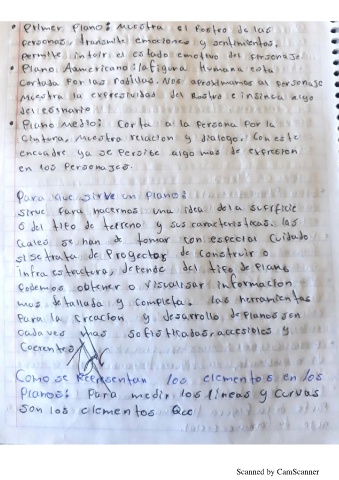 • Primer Plano: Muestra el Rostro de las
Personas, transmite emociones y sentimientos,
Permite intuir el estado emotivo del Personaje
• Plano Americano: la figura Humana esta
Cortada Por las Rodillas. Nos aproximamos al Personaje
Muestra la expresividad del Rostro e insinua algo
del escenario.
• Plano Medio: Corta a la Persona Por la
Cintura, Muestra relacion y dialogo. Con este
encuadre ya se Percibe algo mas de expresion
en los Personajes.
Para que sirve un Plano:
sirve Para hacernos una idea de la superficie
o del tipo de terreno y sus caracteristicas. las
cuales se han de tomar con especial cuidado
si se trata de Proyectos de construir o
infraestructura, depende del tipo de Plano
Podemos obtener o visualisar informacion
mas detallada y completa. las herramientas
Para la Creacion y desarrollo de Planos son
cada ves mas sofisticadas, accesibles y
Coerentes
Como se Representan los elementos en los
Planos: Para medir los lineas y curvas
son los elementos Que
Scanned by CamScanner